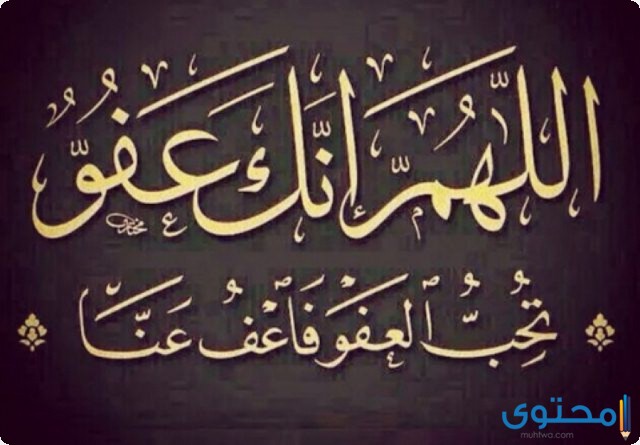 اللَّهُمَّ إنَّكَ عَفُوٌّ
تُحِبُّ ٱلْعَفْوَ فَاعْفُ عَنَّا
محتوى
muhtwa.com